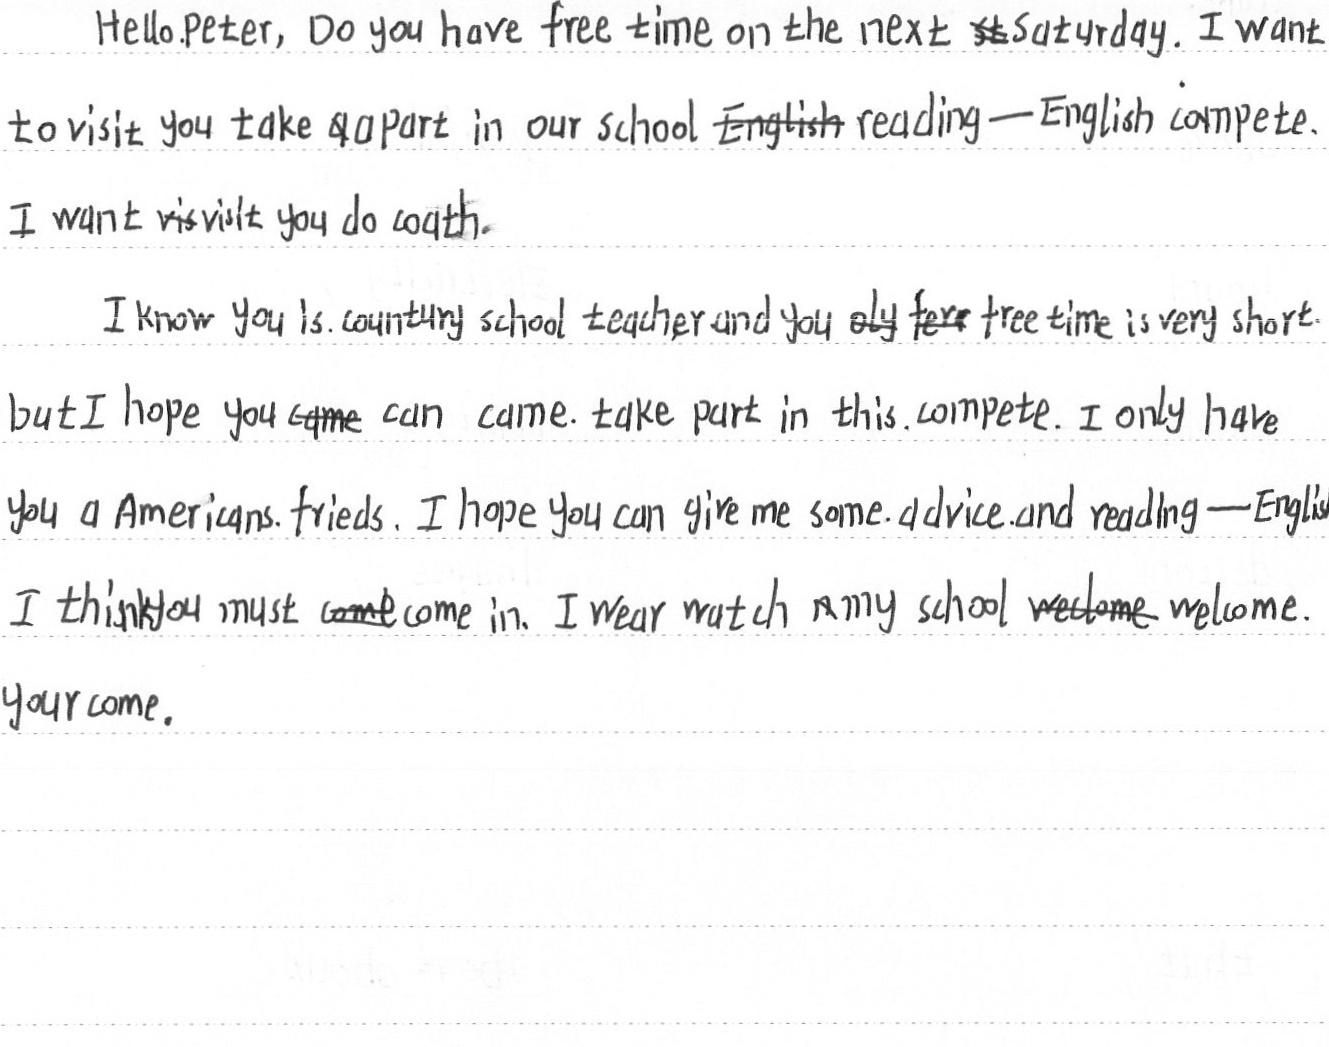 Hello.Peter, Do you have free time on the next Saturday. I want
to visit you take a part in our school English reading—English compete.
I want visit you do coath.
I know you is. countury school teacher and you free time is very short.
but I hope you came can came. take part in this. compete. I only have
you a Americans. frieds. I hope you can give me some. advice. and reading—Englis
I think you must come come in. I wear watch my school weclome welcome.
your come.